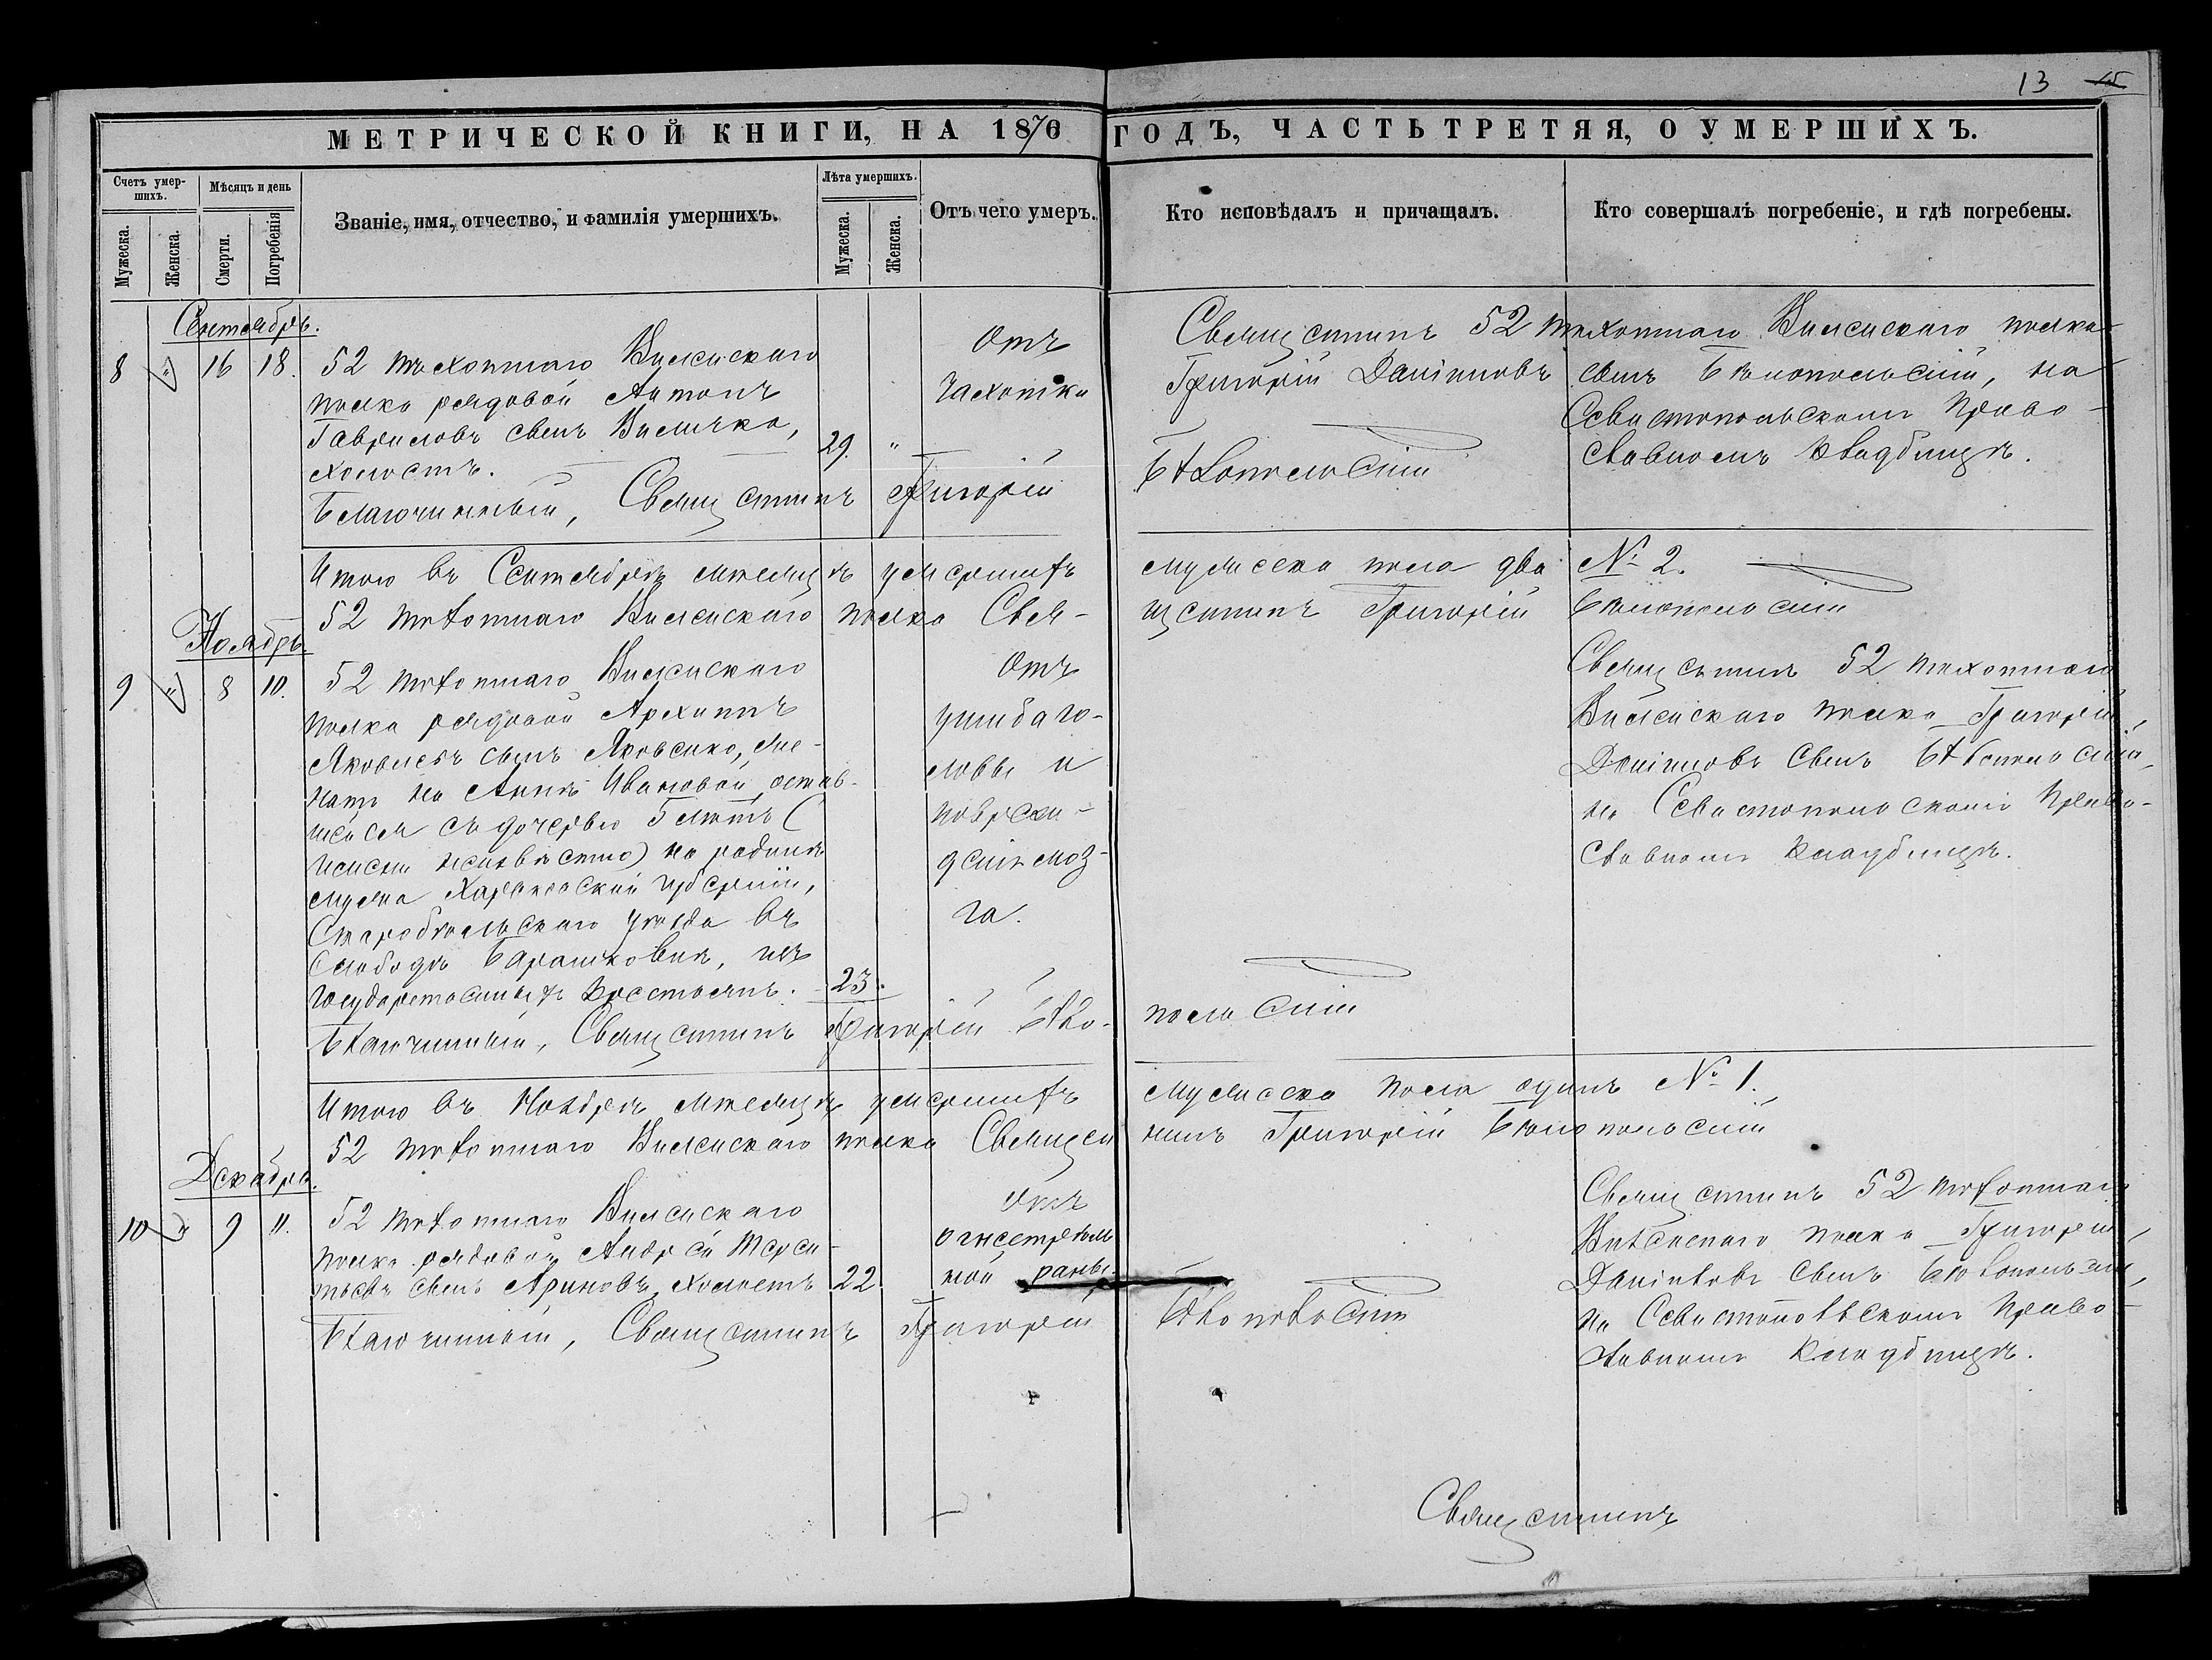 13 15
МЕТРИЧЕСКОЙ КНИГИ, НА 1876 ГОДЪ, ЧАСТЬ ТРЕТЯЯ, О УМЕРШИХЪ.
Счетъ умер-
шихъ.
Мужеска.
Женска.
Мѣсяцъ и день
Смерти.
Погребенія
Званіе, имя, отчество, и фамилія умершихъ.
Лѣта умершихъ.
Мужеска.
Женска.
Отъ чего умеръ.
Кто исповѣдалъ и причащалъ.
Кто совершалъ погребеніе, и гдѣ погребены.
Сентябрь.
8 " 16 18.
52 пѣхотнаго Виленскаго
полка рядовой Антонъ
Гавриловъ сынъ
холостъ.
29. "
Отъ
чахотки
Священникъ 52 пѣхотнаго Виленскаго полка
Григорій Даніиловъ сынъ Бѣлопольскій, на
Севастопольскомъ Право-
славномъ кладбищѣ.
Благочинный, Священникъ Григорій Бѣлопольскій
Итого въ Сентябрѣ мѣсяцѣ умершихъ мужеска пола два № 2.
52 пѣхотнаго Виленскаго полка Священникъ Григорій Бѣлопольскій
Ноябрь
9 " 8 10.
52 пѣхотнаго Виленскаго
полка рядовой Архипъ
Яковлевъ сынъ Яковенко, же-
натъ на Аннѣ Ивановой, остав-
шейся съ дочерью (
неизвѣстно) на родинѣ
мужа Харьковской губерніи,
Старобѣльскаго уѣзда въ
Слободѣ Барашковкѣ, изъ
Государственныхъ Крестьянъ.
23.
Отъ
ушиба го-
ловы и
поврежи-
деніи моз-
га.
Священникъ 52 пѣхотнаго
Виленскаго полка Григорій
Даніиловъ сынъ Бѣлопольскій,
на Севастопольскомъ Право-
славномъ Кладбищѣ.
Благочинный, Священникъ Григорій Бѣло- польскій
Итого въ Ноябрѣ мѣсяцѣ умершихъ мужеска пола одинъ № 1.
52 пѣхотнаго Виленскаго полка Священникъ Григорій Бѣлопольскій
Декабрь.
10 " 9 11.
52 пѣхотнаго Виленскаго
полка рядовой Андрей Терен-
тьевъ сынъ холостъ
22
Отъ
огнестрѣль
ной раны.
Священникъ 52 пѣхотнаго
Виленскаго полка Григорій
Даніиловъ сынъ Бѣлопольскій,
на Севастопольскомъ Право-
славномъ Кладбищѣ.
Благочинный, Священникъ Григорій Бѣлопольскій
Священникъ